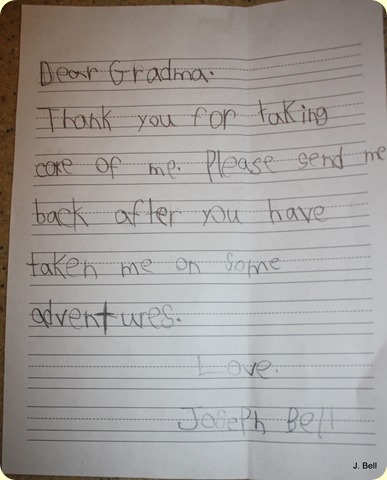 Dear Gradma.
Thank you for taking
care of me. Please send me
back after you have
taken me on some
adventures.
Love.
Joseph Bell
J. Bell